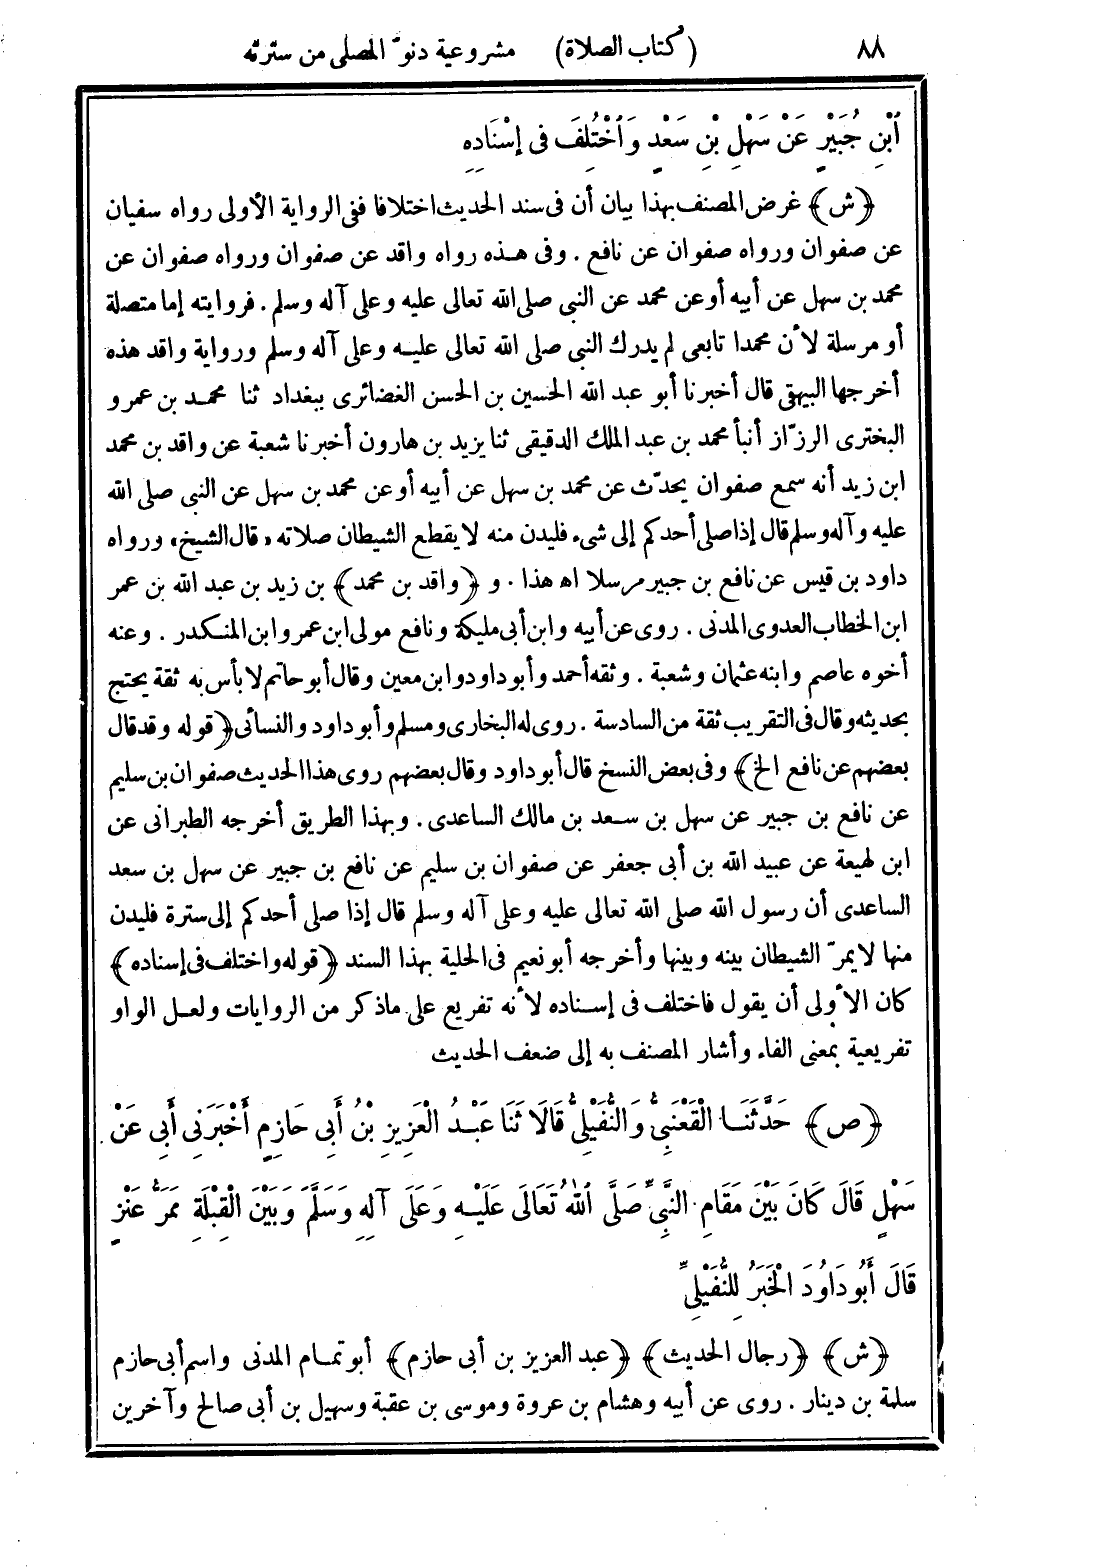 ٨٨ (كتاب الصلاة) مشروعية دنوّ المصلى من سترته
ٱبْنِ جُبَيْرٍ عَنْ سَهْلِ بْنِ سَعْدٍ وَٱخْتُلِفَ فِى إِسْنَادِهِ
﴿ش﴾ غرض المصنف بهذا بيان أن فى سند الحديث اختلافا ففى الرواية الأولى رواه سفيان
عن صفوان ورواه صفوان عن نافع . وفى هـذه رواه واقد عن صفوان ورواه صفوان عن
محمد بن سهل عن أبيه أو عن محمد عن النبى صلى الله تعالى عليه وعلى آله وسلم . فروايته إما متصلة
أو مرسلة لأن محمدا تابعى لم يدرك النبى صلى الله تعالى عليـه وعلى آله وسلم ورواية واقد هذه
أخرجها البيهقى قال أخبرنا أبو عبد الله الحسين بن الحسن الغضائرى ببغداد ثنا محمـد بن عمرو
البخترى الرزّاز أنبأ محمد بن عبد الملك الدقيقى ثنا يزيد بن هارون أخبرنا شعبة عن واقد بن محمد
ابن زيد أنه سمع صفوان يحدّث عن محمد بن سهل عن أبيه أو عن محمد بن سهل عن النبى صلى الله
عليه وآله وسلم قال إذا صلى أحدكم إلى شىء فليدن منه لا يقطع الشيطان صلاته ، قال الشيخ ، ورواه
داود بن قيس عن نافع بن جبير مرسلا اه هذا . و ﴿واقد بن محمد﴾ بن زيد بن عبد الله بن عمر
ابن الخطاب العدوى المدنى . روى عن أبيه وابن أبى مليكة ونافع مولى ابن عمر وابن المنـكدر . وعنه
أخوه عاصم وابنه عثمان وشعبة . وثقه أحمد وأبو داود وابن معين وقال أبو حاتم لا بأس به ثقة يحتج
بحديثه وقال فى التقريب ثقة من السادسة . روى له البخارى ومسلم وأبو داود والنسائى ﴿قوله وقد قال
بعضهم عن نافع الخ﴾ وفى بعض النسخ قال أبو داود وقال بعضهم روى هذا الحديث صفوان بن سليم
عن نافع بن جبير عن سهل بن سـعد بن مالك الساعدى . وبهذا الطريق أخرجه الطبرانى عن
ابن لهيعة عن عبيد الله بن أبى جعفر عن صفوان بن سليم عن نافع بن جبير عن سهل بن سعد
الساعدى أن رسول الله صلى الله تعالى عليه وعلى آله وسلم قال إذا صلى أحدكم إلى سترة فليدن
منها لا يمرّ الشيطان بينه وبينها وأخرجه أبو نعيم فى الحلية بهذا السند ﴿قوله واختلف فى إسناده﴾
كان الأولى أن يقول فاختلف فى إسـناده لأنه تفريع على ما ذكر من الروايات ولعـل الواو
تفريعية بمعنى الفاء وأشار المصنف به إلى ضعف الحديث
﴿ص﴾ حَدَّثَنَـا الْقَعْنَبِىُّ وَالنُّفَيْلِىُّ قَالَا ثَنَا عَبْـدُ الْعَزِيزِ بْنُ أَبِى حَازِمٍ أَخْبَرَنِى أَبِى عَنْ
سَهْلٍ قَالَ كَانَ بَيْنَ مَقَامِ النَّبِىِّ صَلَّى ٱللهُ تَعَالَى عَلَيْـهِ وَعَلَى آلِهِ وَسَلَّمَ وَبَيْنَ الْقِبْلَةِ مَمَرُّ عَنْزٍ
قَالَ أَبُو دَاوُدَ الْخَبَرُ لِلنُّفَيْلِىِّ
﴿ش﴾ ﴿رجال الحديث﴾ ﴿عبد العزيز بن أبى حازم﴾ أبو تمـام المدنى واسم أبى حازم
سلمة بن دينار . روى عن أبيه وهشام بن عروة وموسى بن عقبة وسهيل بن أبى صالح وآخرين